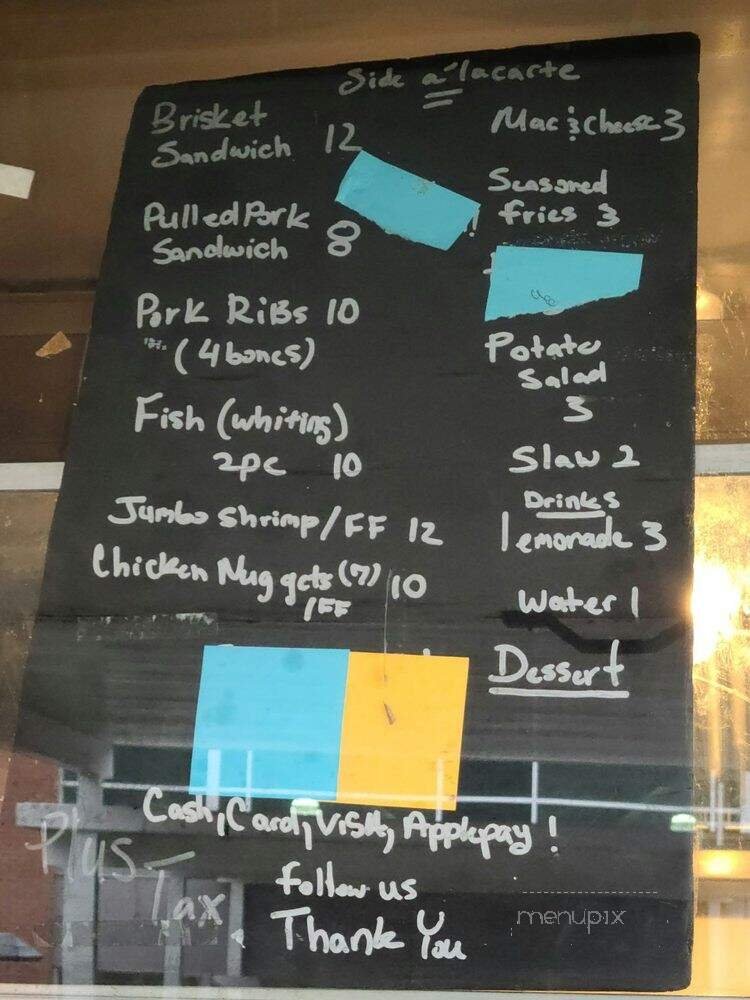 Side a'lacarte
Brisket
Sandwich 12
Pulled Pork
Sandwich 8
Pork Ribs 10
(4 bones)
Fish (whiting)
2pc 10
Jumbo Shrimp/FF 12
Chicken Nuggets (7) 10
/FF
Mac & Cheese 3
Seasoned
fries 3
Potato
Salad
3
Slaw 2
Drinks
lemonade 3
Water 1
Dessert
Cash, Card, Visa, Applepay!
Plus
Tax
follow us
Thank You
menupix